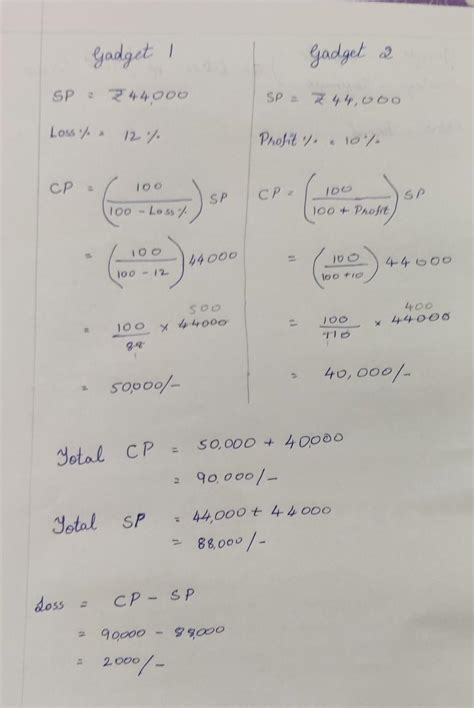 Gadget 1
SP = ₹44,000
Loss% = 12%
CP = (100 / 100 - Loss%) SP
= (100 / 100 - 12) 44000
= 100 / 88 × 44000 500
1
= 50,000/-
Gadget 2
SP = ₹44,000
Profit% = 10%
CP = (100 / 100 + Profit) SP
= (100 / 100+10) 44000
= 100 / 110 × 44000 400
1
= 40,000/-
Total CP = 50,000 + 40,000
= 90,000/-
Total SP = 44,000 + 44000
= 88,000/-
Loss = CP - SP
= 90,000 - 88,000
= 2000/-